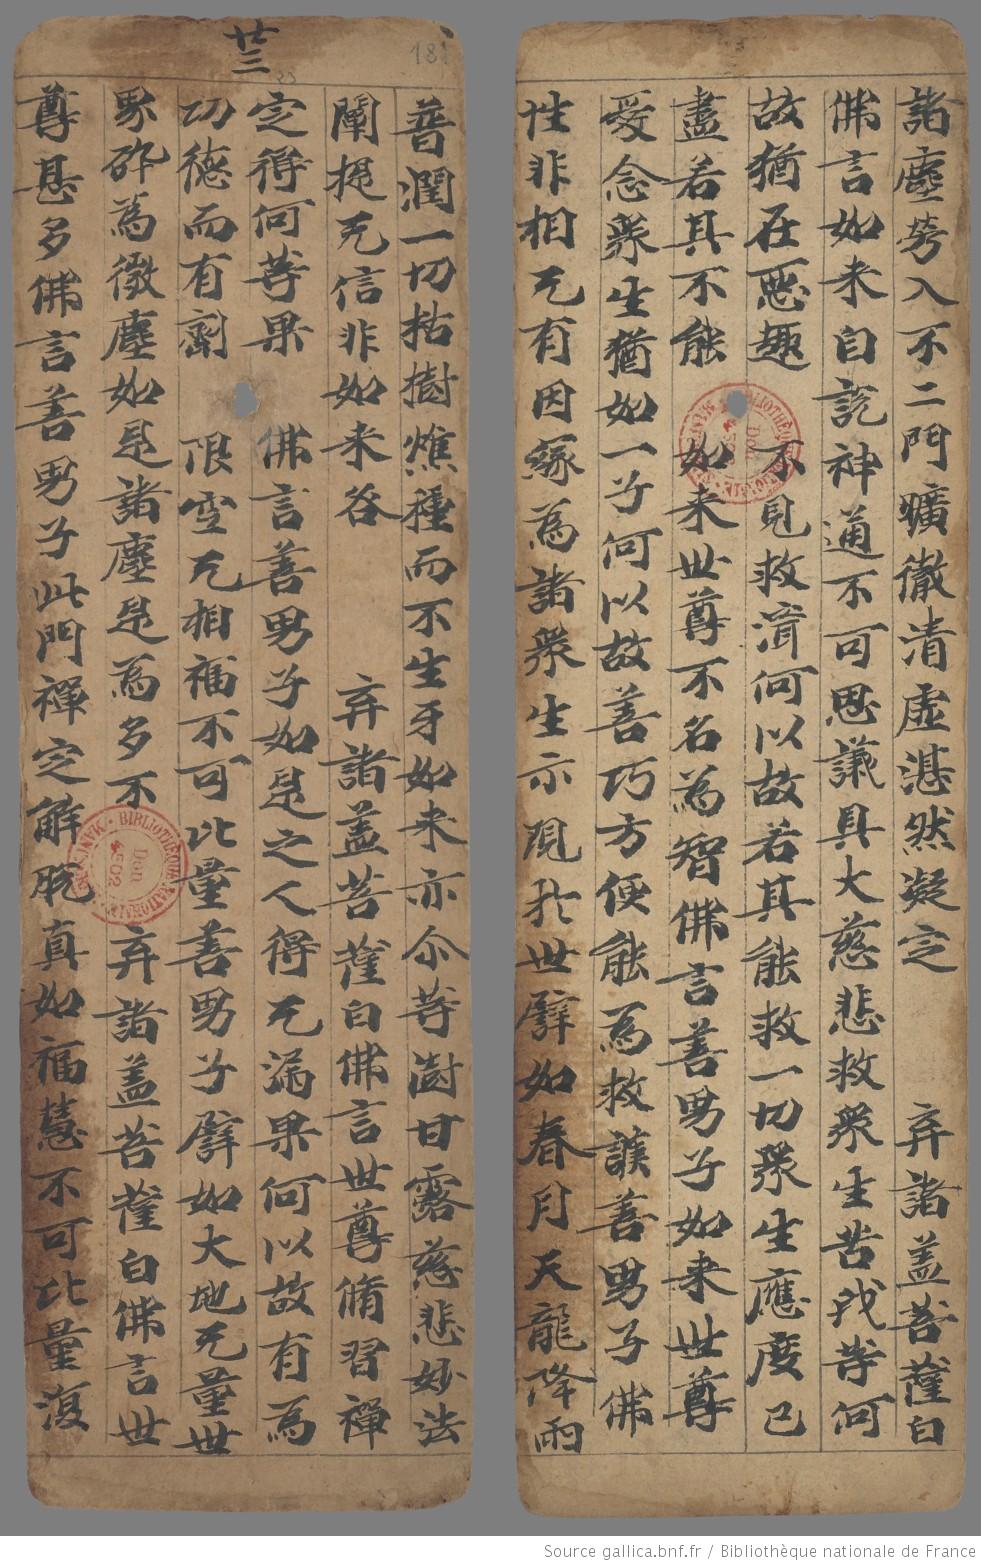 諸塵勞入不二門曠徹清虛湛然凝定 弃諸盖菩薩白
佛言如来自說神通不可思議具大慈悲救衆生苦我等何
故猶在惡趣 不見救濟何以故若其能救一切衆生應度已
盡若其不能 如来世尊不名為智佛言善男子如来世尊
愛念衆生猶如一子何以故善巧方便能為救護善男子佛
性非相无有因緣為諸衆生示現扵世譬如春月天龍降雨
廿三
181
普潤一切枯樹燋種而不生牙如来亦尒等澍甘露慈悲妙法
闡提无信非如来咎 弃諸盖菩薩白佛言世尊脩習禪
定得何等果 佛言善男子如是之人得无漏果何以故有為
功德而有劑 限空无相福不可比量善男子譬如大地无量世
界碎為微塵如是諸塵是為多不 弃諸盖菩薩白佛言世
尊甚多佛言善男子此門禪定解脱真如福慧不可比量復
Source gallica.bnf.fr / Bibliothèque nationale de France